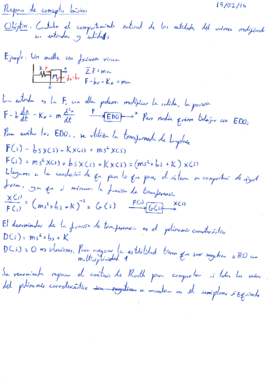 19/02/14
Repaso de conceptos básicos
Objetivo: Controlar el comportamiento natural de las salidas del sistema modificando
las entradas y salidas
Ejemplo: Un muelle con fricción viscosa
Σ F = ma
F - bv - Kx = ma
La entrada es la F, con ella podemos modificar la salida, la posición
F - b dx/dt - Kx = m d²x/dt² F EDO x Pero nadie quiere trabajar con EDO.
Para evitar las EDO, se utiliza la transformada de Laplace
F(s) - bsX(s) - KX(s) = ms²X(s)
F(s) = ms²X(s) + bsX(s) + KX(s) = (ms²+bs+K)X(s)
Llegamos a la conclusión de que para lo que pase, el sistema se comportará de igual
forma, ya que si miramos la función de transferencia
X(s)/F(s) = (ms²+bs+K)⁻¹ = G(s) F(s) G(s) X(s)
El denominador de la función de transferencia es el polinomio característico
D(s) = ms²+bs+K.
D(s) = 0 soluciones. Para asegurar la estabilidad tienen que ser negativas o RO con
multiplicidad 1
Es conveniente repasar el criterio de Routh para comprobar si todas las raíces
del polinomio característico son negativas o muestran en el semiplano izquierdo